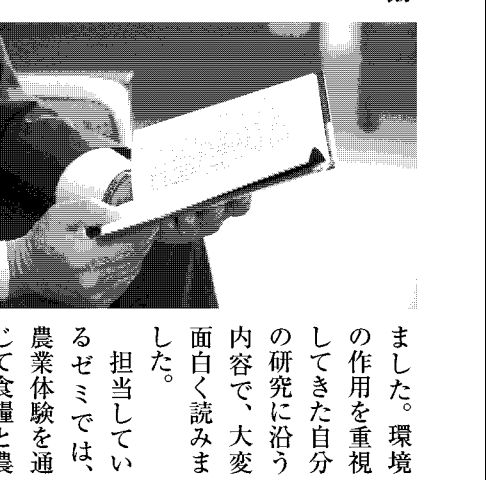 ました。環境
の作用を重視
してきた自分
の研究に沿う
内容で、大変
面白く読みま
した。
担当してい
るゼミでは、
農業体験を通
じて食糧と農